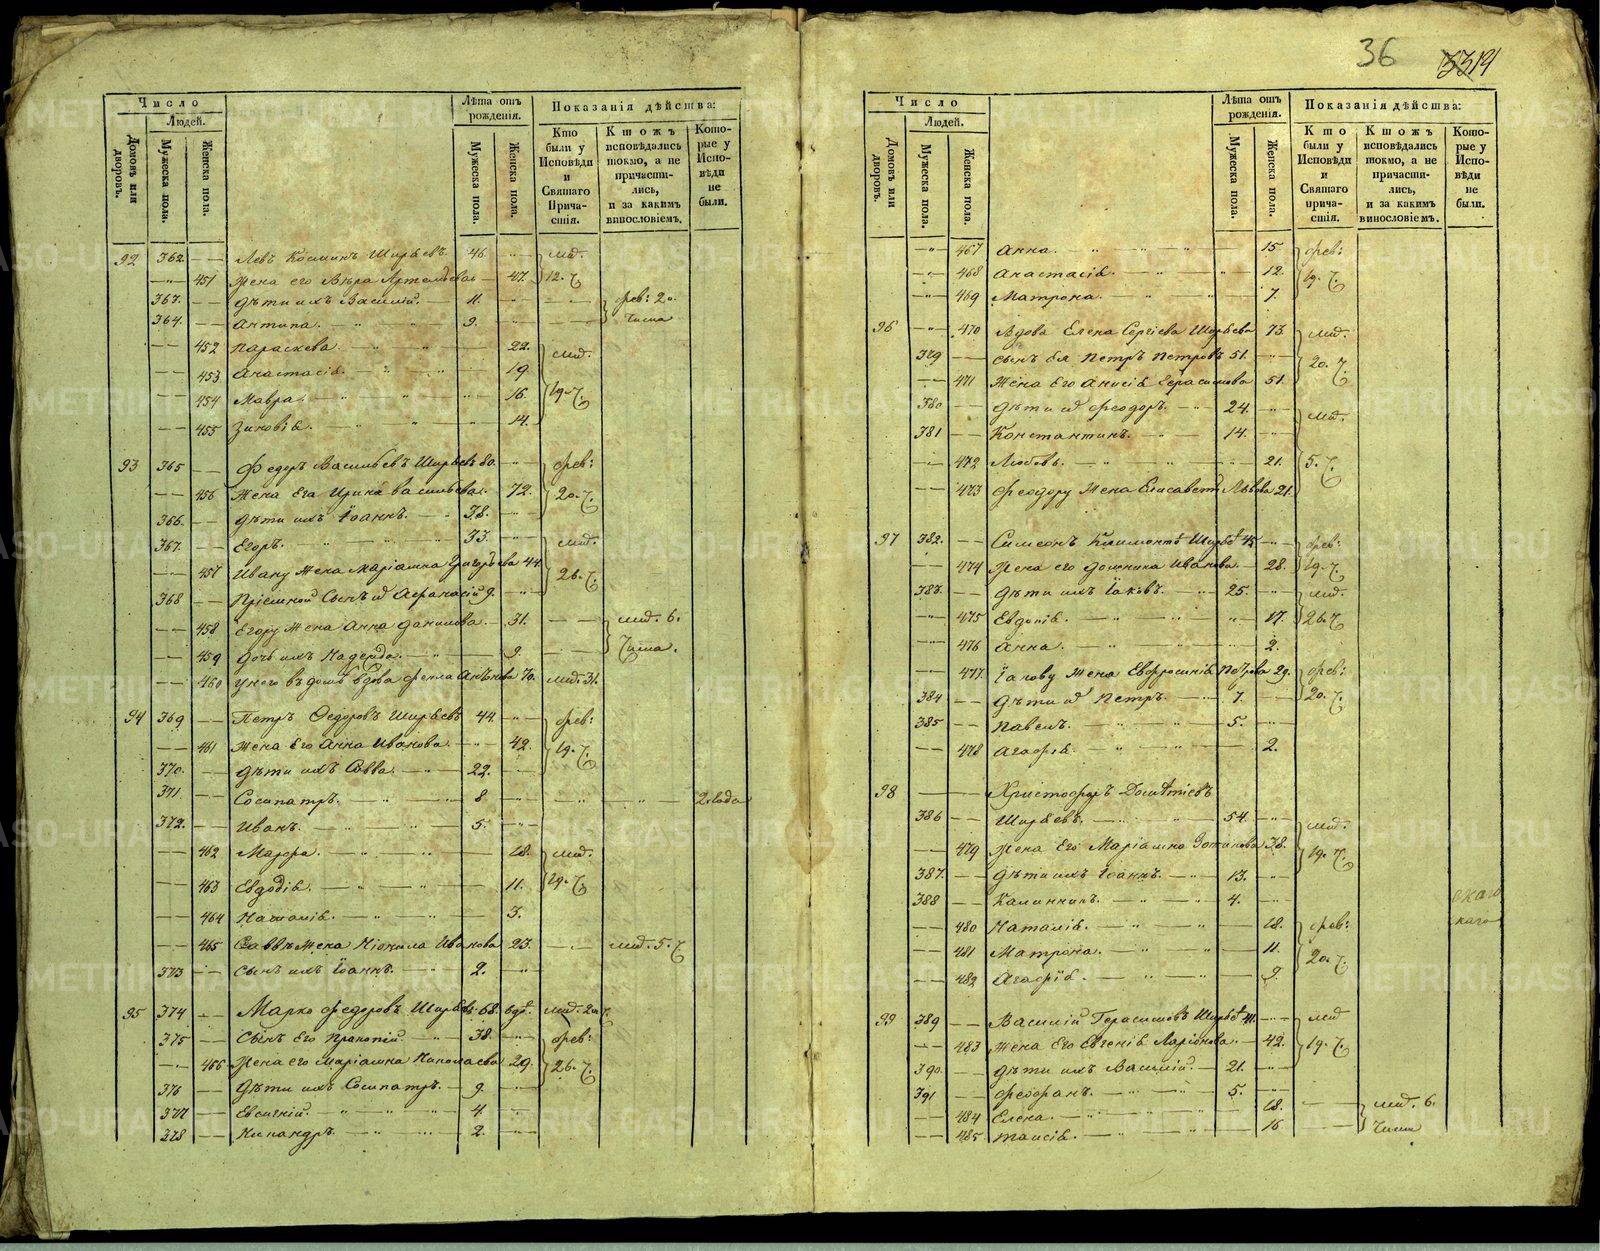 36
Число
Людей.
Домовъ или дворовъ.
Мужеска пола.
Женска пола.
Лѣта отъ рожденія.
Мужеска пола.
Женска пола.
Показанія дѣйства:
Кто были у Исповѣди и Святаго Прича-стія.
Ктожъ исповѣдались токмо, а не причасти-лись, и за какимъ винословіемъ.
Кото-рые у Испо-вѣди не были.
92 362 Левъ Козминъ Ширяевъ 46. мар.
451 Жена его Вѣра Артемьева 47. 12. ч.
363. дѣти ихъ Василій. 11. фев: 20.
364. Антипа. 9. числа
452 Параскева. 22. мар.
453 Анастасія. 19
454 Мавра. 16. 19. ч.
455 Зиновія. 14.
93 365 Федоръ Васильевъ Ширяевъ 80. фев:
456 Жена Его Ирина Васильева. 72. 20. ч.
366. дѣти ихъ Іоаннъ. 38.
367. Егоръ. 33. мар.
457 Ивану Жена Маріамна Григорьева 44. 26. ч.
368 Пріемной Сынъ Афанасій 9.
458 Егору Жена Анна Данилова. 31. мар. 6.
459 Дочь ихъ Надежда. 9. Числа.
460 У него въ домѣ вдова Фекла 70. мар. 31.
94 369 Петръ Федоровъ Ширяевъ 44. фев:
461 Жена Его Анна Иванова 42. 19. ч.
370. дѣти ихъ Савва. 22.
371. Сосипатръ. 8 2. года
372. Иванъ. 5.
462 Марфа. 18. мар.
463 Евдокія. 11. 19. ч.
464 Наталія. 3.
465 Саввѣ Жена Неонила Иванова 23. мар. 5. ч.
373 Сынъ ихъ Іоаннъ. 2.
95 374 Марко Федоровъ Ширяевъ 68. вдов. мар. 20 ч.
375 Сынъ Его Прокопій 38. фев:
466 Жена его Маріамна Николаева 29. 26. ч.
376 Дѣти ихъ Сосипатръ. 9.
377 Евгеній. 4.
378 Никандръ. 2.
Число
Людей.
Домовъ или дворовъ.
Мужеска пола.
Женска пола.
Лѣта отъ рожденія.
Мужеска пола.
Женска пола.
Показанія дѣйства:
Кто были у Исповѣди и Святаго прича-стія.
Ктожъ исповѣдались токмо, а не причасти-лись, и за какимъ винословіемъ.
Кото-рые у Испо-вѣди не были.
467 Анна. 15 фев:
468 Анастасія. 12. 19. ч.
469 Матрона. 7.
96 470 Вдова Елена Сергіева Ширяева 73. мар.
379 Сынъ Ея Петръ Петровъ 51. 20. ч.
471 Жена Его Анисія Герасимова 51.
380 дѣти Феодоръ. 24. мар.
381 Константинъ. 14.
472 Любовь. 21. 5. ч.
473 Феодору Жена Елисавета Львова 21.
97 382. Симеонъ Климонтовъ 45 фев:
474 Жена его Домника Иванова. 28. 19. ч.
383. Дѣти ихъ Іаковъ. 25. мар.
475 Евдокія. 17. 26. ч
476 Анна. 2.
477. Іакову Жена Евфросинія Петрова 29. фев:
384 дѣти Петръ. 7. 20. ч.
385 Павелъ. 5.
478 Агафія. 2.
98 Христофоръ
386 Ширяевъ. 54. мар.
479 Жена Его Маріамна 38. 19. ч.
387. Дѣти ихъ Іоаннъ. 13.
388 Калинникъ. 4.
480 Наталія. 18. фев:
481 Матрона. 11. 20. ч.
482 Агафія. 9.
99 389 Василій Герасимовъ 41. мар
483 Жена Его Евгенія Ларіонова. 42. 19. ч.
390. дѣти ихъ Василій. 21.
391 Феофанъ. 5.
484 Елена. 18. мар. 6.
485 Таисія. 16 Числа